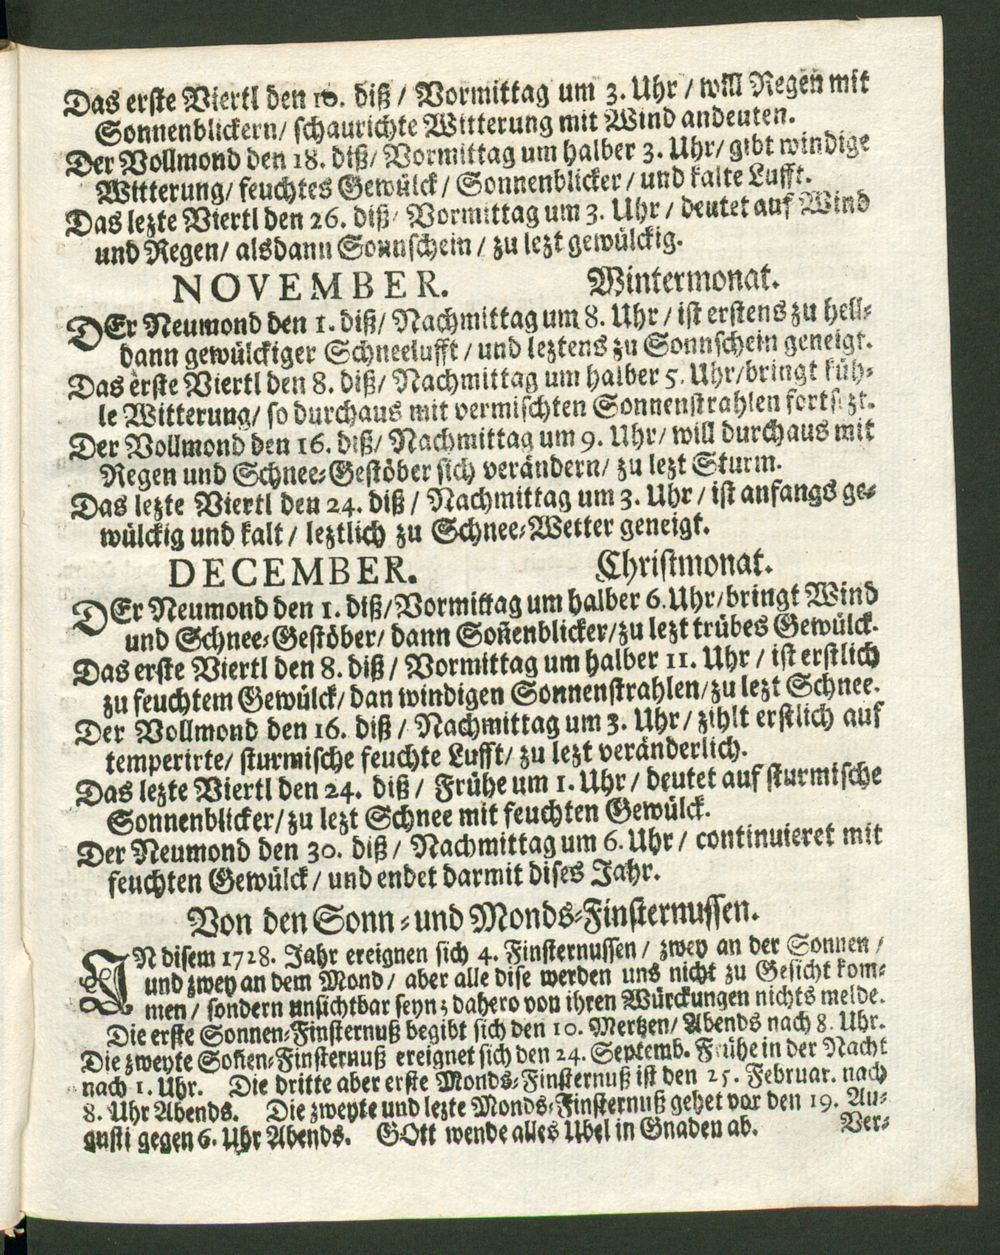 Das erste Viertl den 10. diß / Vormittag um 3. Uhr / will Regen mit
Sonnenblickern / schaurichte Witterung mit Wind andeuten.
Der Vollmond den 18. diß / Vormittag um halber 3. Uhr / gibt windige
Witterung / feuchtes Gewülck / Sonnenblicker / und kalte Lufft.
Das lezte Viertl den 26. diß / Vormittag um 3. Uhr / deutet auf Wind
und Regen / alsdann Sonnschein / zu lezt gewülckig.
NOVEMBER. Wintermonat.
DEr Neumond den 1. diß / Nachmittag um 8. Uhr / ist erstens zu hell-
dann gewülckiger Schneelufft / und leztens zu Sonnschein geneigt.
Das erste Viertl den 8. diß / Nachmittag um halber 5. Uhr / bringt küh-
le Witterung / so durchaus mit vermischten Sonnenstrahlen fortsezt.
Der Vollmond den 16. diß / Nachmittag um 9. Uhr / will durchaus mit
Regen und Schnee-Gestöber sich verändern / zu lezt Sturm.
Das lezte Viertl den 24. diß / Nachmittag um 3. Uhr / ist anfangs ge-
wülckig und kalt / leztlich zu Schnee-Wetter geneigt.
DECEMBER. Christmonat.
DEr Neumond den 1. diß / Vormittag um halber 6. Uhr / bringt Wind
und Schnee-Gestöber / dann Soñenblicker / zu lezt trübes Gewülck.
Das erste Viertl den 8. diß / Vormittag um halber 11. Uhr / ist erstlich
zu feuchtem Gewülck / dan windigen Sonnenstrahlen / zu lezt Schnee.
Der Vollmond den 16. diß / Nachmittag um 3. Uhr / zihlt erstlich auf
temperirte / sturmische feuchte Lufft / zu lezt veränderlich.
Das lezte Viertl den 24. diß / Frühe um 1. Uhr / deutet auf sturmische
Sonnenblicker / zu lezt Schnee mit feuchten Gewülck.
Der Neumond den 30. diß / Nachmittag um 6. Uhr / continuieret mit
feuchten Gewülck / und endet darmit dises Jahr.
Von den Sonn- und Monds-Finsternussen.
IN disem 1728. Jahr ereignen sich 4. Finsternussen / zwey an der Sonnen /
und zwey an dem Mond / aber alle dise werden uns nicht zu Gesicht kom-
men / sondern unsichtbar seyn; dahero von ihren Würckungen nichts melde.
Die erste Sonnen-Finsternuß begibt sich den 10. Mertzen / Abends nach 8. Uhr.
Die zweyte Soñen-Finsternuß ereignet sich den 24. Septemb. Frühe in der Nacht
nach 1. Uhr. Die dritte aber erste Monds-Finsternuß ist den 25. Februar. nach
8. Uhr Abends. Die zweyte und lezte Monds-Finsternuß gehet vor den 19. Au-
gusti gegen 6. Uhr Abends. GOtt wende alles Ubel in Gnaden ab.
Ver-